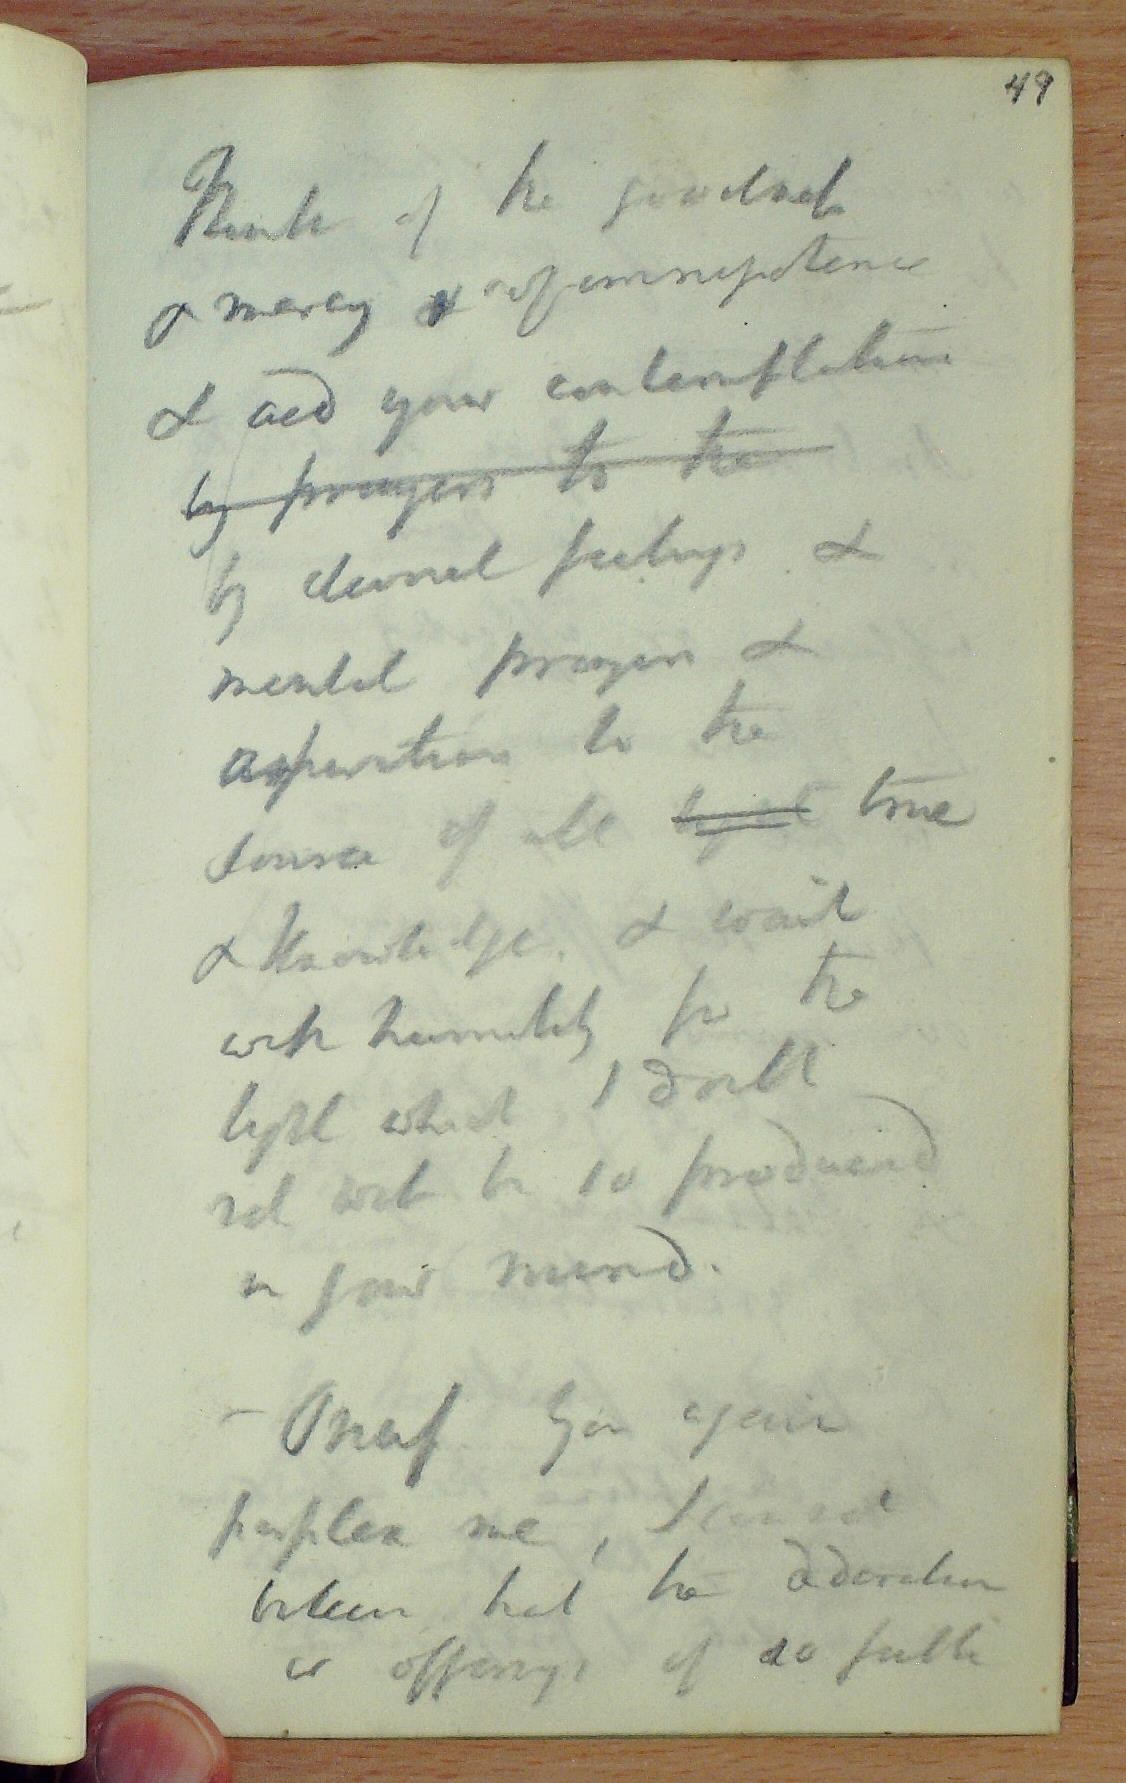 49
Think of the goodness
& mercy & of omnipotence
& aid your contemplation
by prayers to the
by devotional feelings &
mental prayer &
aspirations to the
source of all light true
& Knowledge. & wait
with humility for the
light which I doubt
not will be so produced
in your mind.
– Onuph You again
perplex me, I cannot
believe that the adoration
or offerings of so feeble